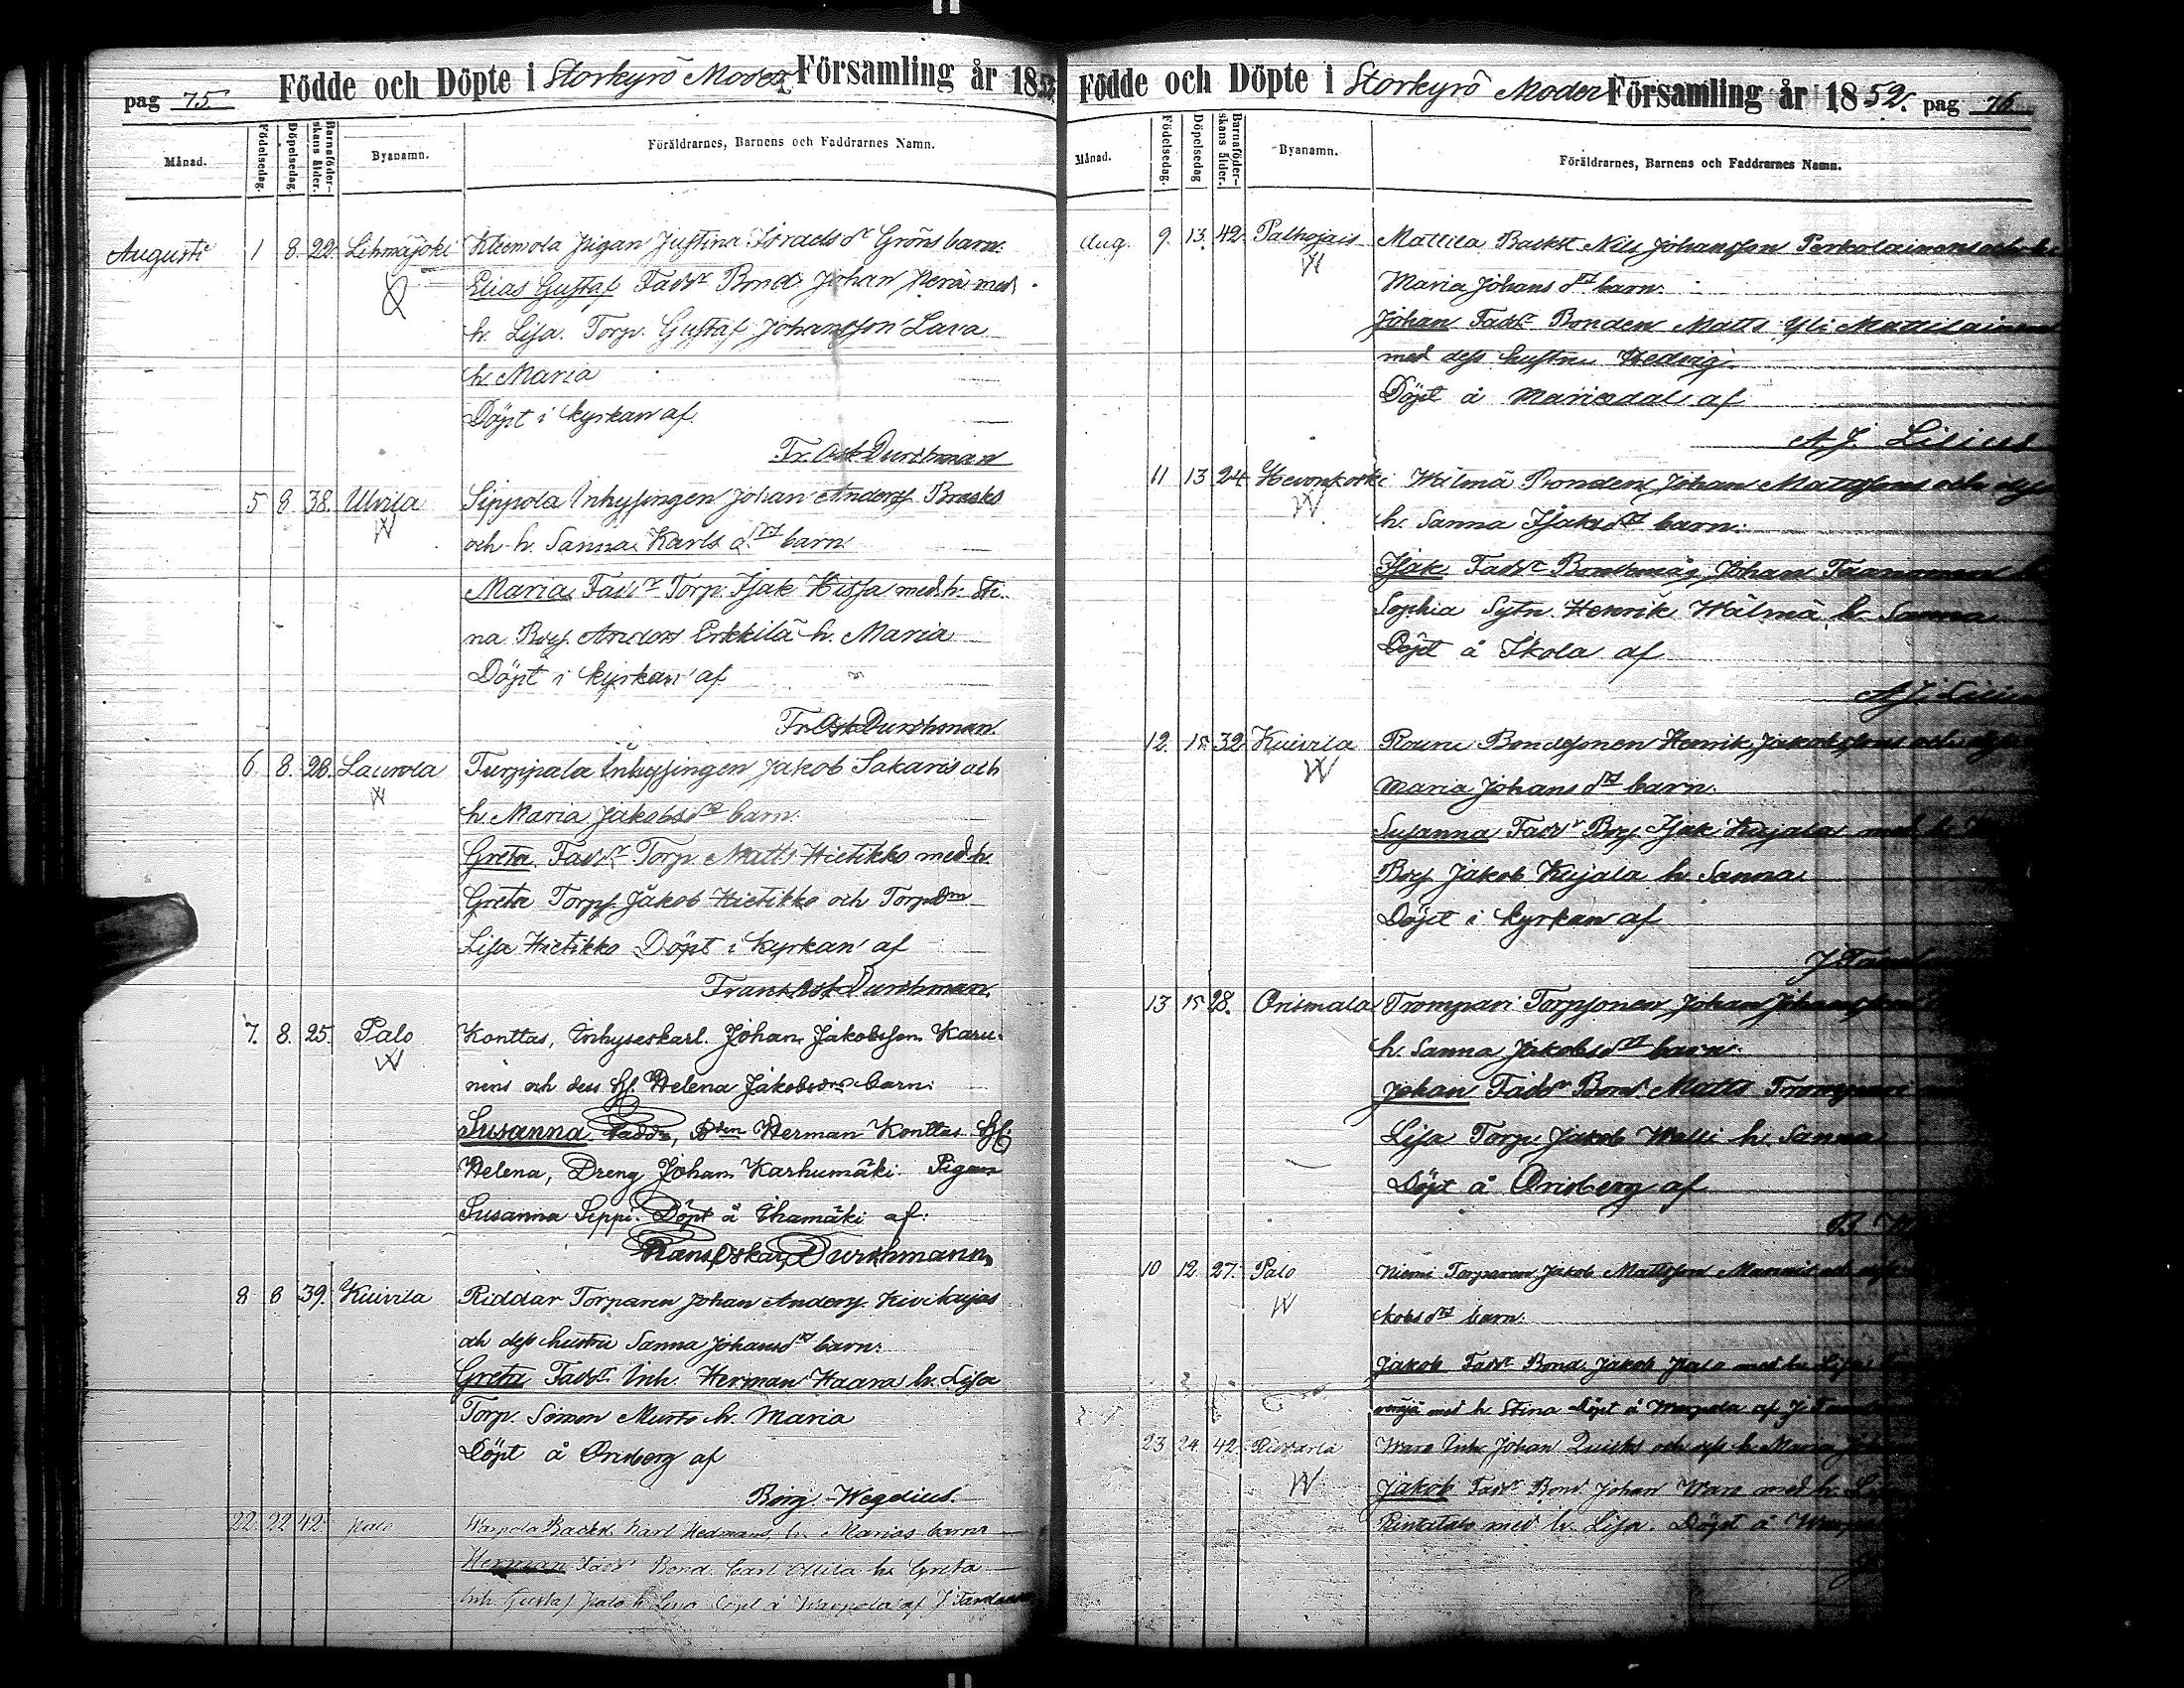 pag 75 Födde och Döpte i Storkyrö Moder Församling år 1852.
Månad. Födelsedag. Döpelsedag. Barnaföderskans ålder. Byanamn. Föräldrarnes, Barnens och Faddrarnes Namn.
Augusti 1 8. 22. Lehmäjoki Kleemola Pigan Justina Israelsdr Gröns barn.
Elias Gustaf Faddr Bond. Johan Perä med
h. Lisa. Torp. Gustaf Johansson Lava
h. Maria
Döpt i kyrkan af
Fr. Osk Durchman
5 8 38. Ulvila Sippola Inhysingen Johan Anderss Brusks
W och h. Sanna Karls dr barn:
Maria Faddr Torp. Isak Hissa med h. Sti-
na Boss. Anders Erkkilä h. Maria
Döpt i kyrkan af
Fr. Osk Durchman.
6. 8. 28. Laurola Turppala Inhysingen Jakob Sakaris och
W h. Maria Jakobsdr barn.
Greta Faddr Torp. Matts Hietikko med h.
Greta Torps. Jakob Hietikko och Torpdrn
Lisa Hietikko Döpt i kyrkan af
Frans Osk Durchman.
7. 8. 25. Palo Konttas, Inhyseskarl. Johan Jakobsson Karu-
W nens och dess hf. Helena Jakobsdrs barn:
Susanna Faddr, Bden Herman Konttas hf:
Helena, Dreng Johan Karhumäki. Pigan
Susanna Sippi. Döpt å Ihamäki af:
Frans Oskar Durchmann
8 8 39. Kuivila Riddar Torparen Johan Anderss. Kivikujas
och dess hustru Sanna Johansdr barn:
Greta Faddr Inh. Herman Haara h. Lisa
Torp. Simon Musto h. Maria
Döpt å Orisberg af
Borg. Wegelius.
22. 22 42. Palo Warpola Backst. Karl Hedmans, h. Marias barn
Herman Faddr Bond. Carl Ollila h. Greta
Inh. Gustaf Palo h. Lisa Döpt å Warpola af J
Födde och Döpte i Storkyrö Moder Församling år 1852. pag 76
Månad. Födelsedag. Döpelsedag Barnaföderskans ålder. Byanamn. Föräldrarnes, Barnens och Faddrarnes Namn.
Aug. 9. 13. 42. Palhojais Mattila Backst Nils Johansson Perkolainens och h.
W Maria Johans dr barn.
Johan Faddr Bonden Matts Yli Mattilainen
med dess hustru Hedvig.
Döpt å Mariedal af
A. J. Lilius
11 13 24 Hevonkoski Wälmä Bonden Johan Mattssons och dess
W h. Sanna Isaksdr barn:
Isak Faddr Bondemåg Johan
Sophia Sytn. Henrik Wälmä h. Sanna
Döpt å Ikola af
A. J. Lilius
12. 15 32 Kuivila Rouru Bondesonen Henrik Jakobssons och dess
W Maria Johansdr barn.
Susanna Faddr Boss. Isak Kujala med h.
Boss. Jakob Kujala h. Sanna
Döpt i kyrkan af
J
13 15 28. Orismala Trompari Torpsonen Johan Johanssons
h. Sanna Jakobsdr barn:
Johan Faddr Bond. Matts Trompari
Lisa Torp. Jakob Walli h. Sanna
Döpt å Orisberg af
B. W
10 12 27. Palo Niemi Torparen Jakob Mattsson
W kobsdr barn:
Jakob Faddr Bond. Jakob Palo med h. Lisa
med h. Stina Döpt å Warpola af J.
23 24 42. Waro Inh. Johan och dess h. Maria
W Jakob Faddr Bond Johan Waro med h. L
med h. Lisa. Döpt å